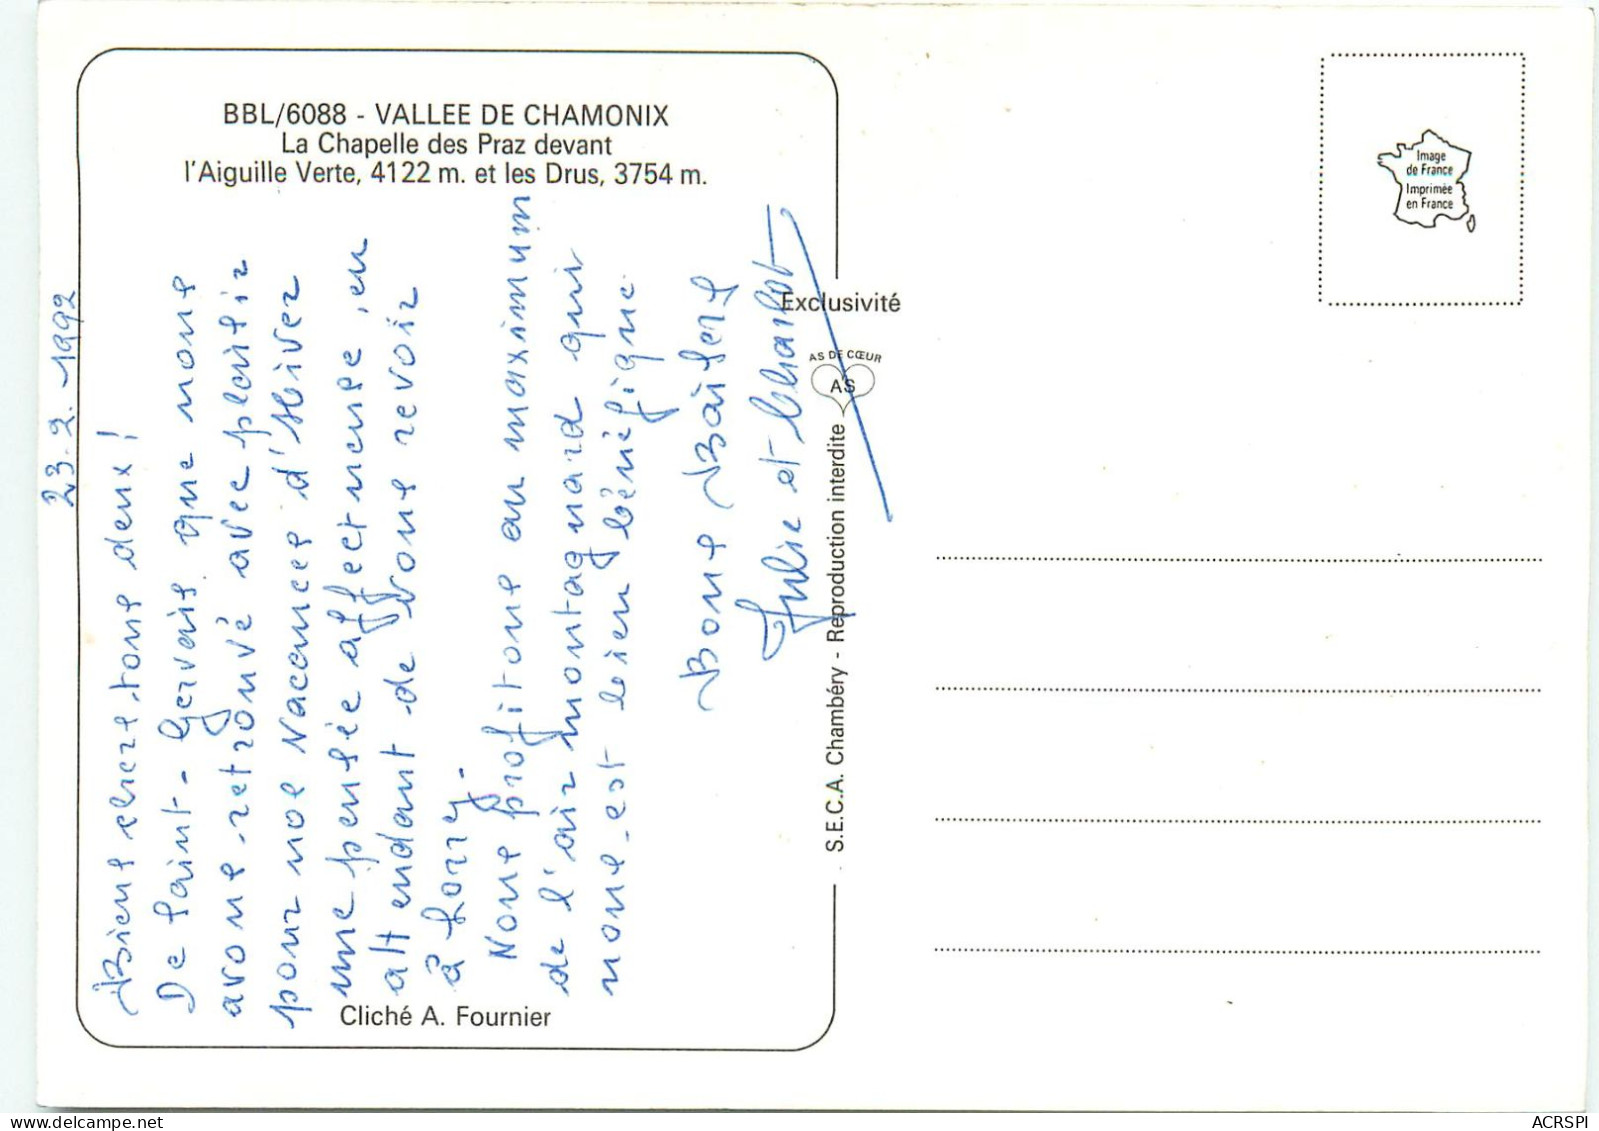 BBL/6088 - VALLEE DE CHAMONIX
La Chapelle des Praz devant
l'Aiguille Verte, 4122 m. et les Drus, 3754 m.
23-2-1992
Biens chers tous deux!
De Saint-Gervais que nous
avons retrouvé avec plaisir
pour nos vacances d'Hiver
une pensée affectueuse, en
attendant de vous revoir
à
Nous profitons au maximum
de l'air montagnard qui
nous est bien bénéfique
Bons Baisers
Julie et Charlot
Cliché A. Fournier
Exclusivité
AS DE CŒUR
AS
S.E.C.A. Chambéry - Reproduction interdite
Image
de France
Imprimée
en France
delcampe.net
ACRSPI